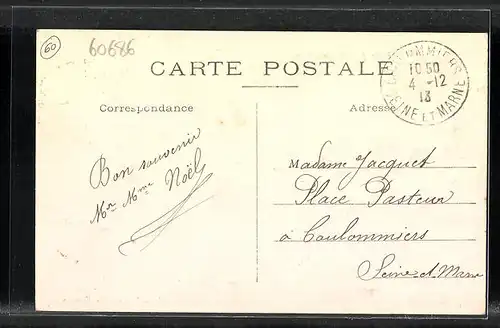 60
60686
CARTE POSTALE
COULOMMIERS
10 50
4 - 12
13
SEINE ET MARNE
Correspondance
Adresse
Bon souvenir
Mr Mme Noël
Madame Jacquet
Place Pasteur
à Coulommiers
Seine-et-Marne